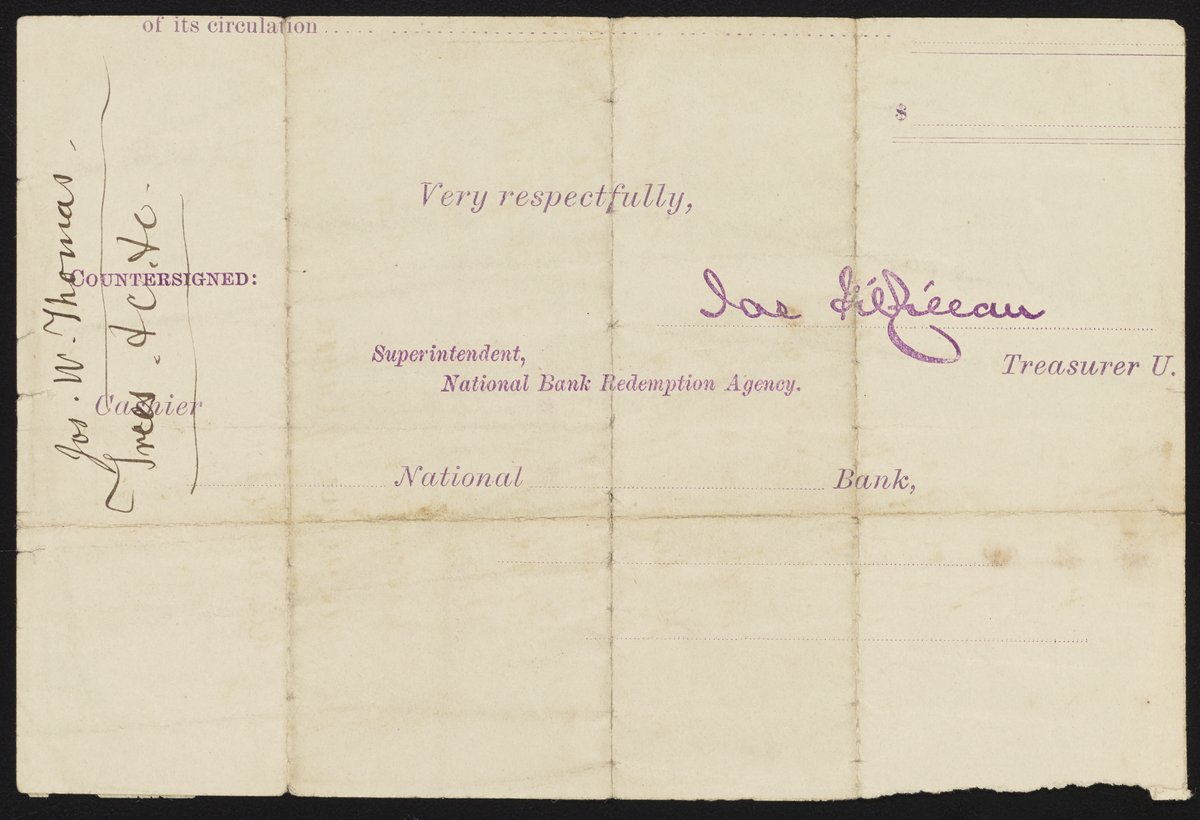 of its circulation
$
Very respectfully,
COUNTERSIGNED:
Jas Gilfillan
Superintendent,
National Bank Redemption Agency.
Treasurer U.
Cashier
National Bank,
Jos. W. Thomas.
Trees. &C. &c.